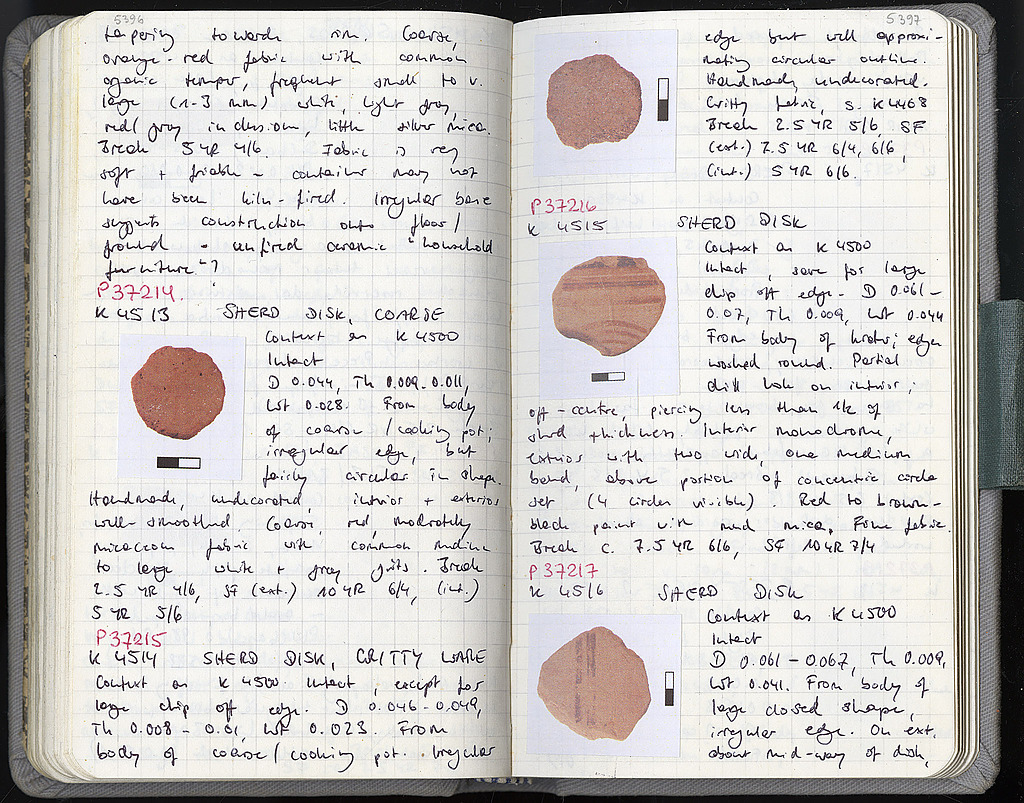 5396
tapering towards rim. Coarse,
orange-red fabric with common
organic temper, frequent small to v.
large (1-3 mm) white, light gray,
red/gray inclusions, little silver mica.
Break 5 YR 4/6. Fabric is very
soft + friable - container may not
have been kiln-fired. Irregular base
suggests construction onto floor/
ground - unfired ceramic "household
furniture"?
P37214.
K 4513 SHERD DISK, COARSE
Context as K 4500
Intact
D 0.044, Th 0.009-0.011,
Wt 0.028. From body
of coarse/cooking pot;
irregular edge, but
fairly circular in shape.
Handmade, undecorated, interior + exterior
well-smoothed. Coarse, red, moderately
micaceous fabric with common medium
to large white + gray grits. Break
2.5 YR 4/6, SF (ext.) 10 YR 6/4, (int.)
5 YR 5/6
P37215
K 4514 SHERD DISK, GRITTY WARE
Context as K 4500. Intact, except for
large chip off edge. D 0.046-0.049,
Th 0.008-0.01, Wt 0.023. From
body of coarse/cooking pot. Irregular
5397
edge but well approxi-
mating circular outline.
Handmade, undecorated.
Gritty fabric, s. K 4468
Break 2.5 YR 5/6, SF
(ext.) 7.5 YR 6/4, 6/6,
(int.) 5 YR 6/6.
P37216
K 4515 SHERD DISK
Context as K 4500
Intact, save for large
chip off edge. D 0.061-
0.07, Th 0.009, Wt 0.044
From body of krater; edges
worked round. Partial
drill hole on interior;
off-centre, piercing less than 1/2 of
sherd thickness. Interior monochrome,
exterior with two wide, one medium
band, above portion of concentric circle
set (4 circles visible). Red to brown-
black paint with much mica. Fine fabric.
Break c. 7.5 YR 6/6, SF 10 YR 7/4
P37217
K 4516 SHERD DISK
Context as K 4500
Intact
D 0.061-0.067, Th 0.009,
Wt 0.041. From body of
large closed shape,
irregular edge. On ext.
about mid-way of disk,